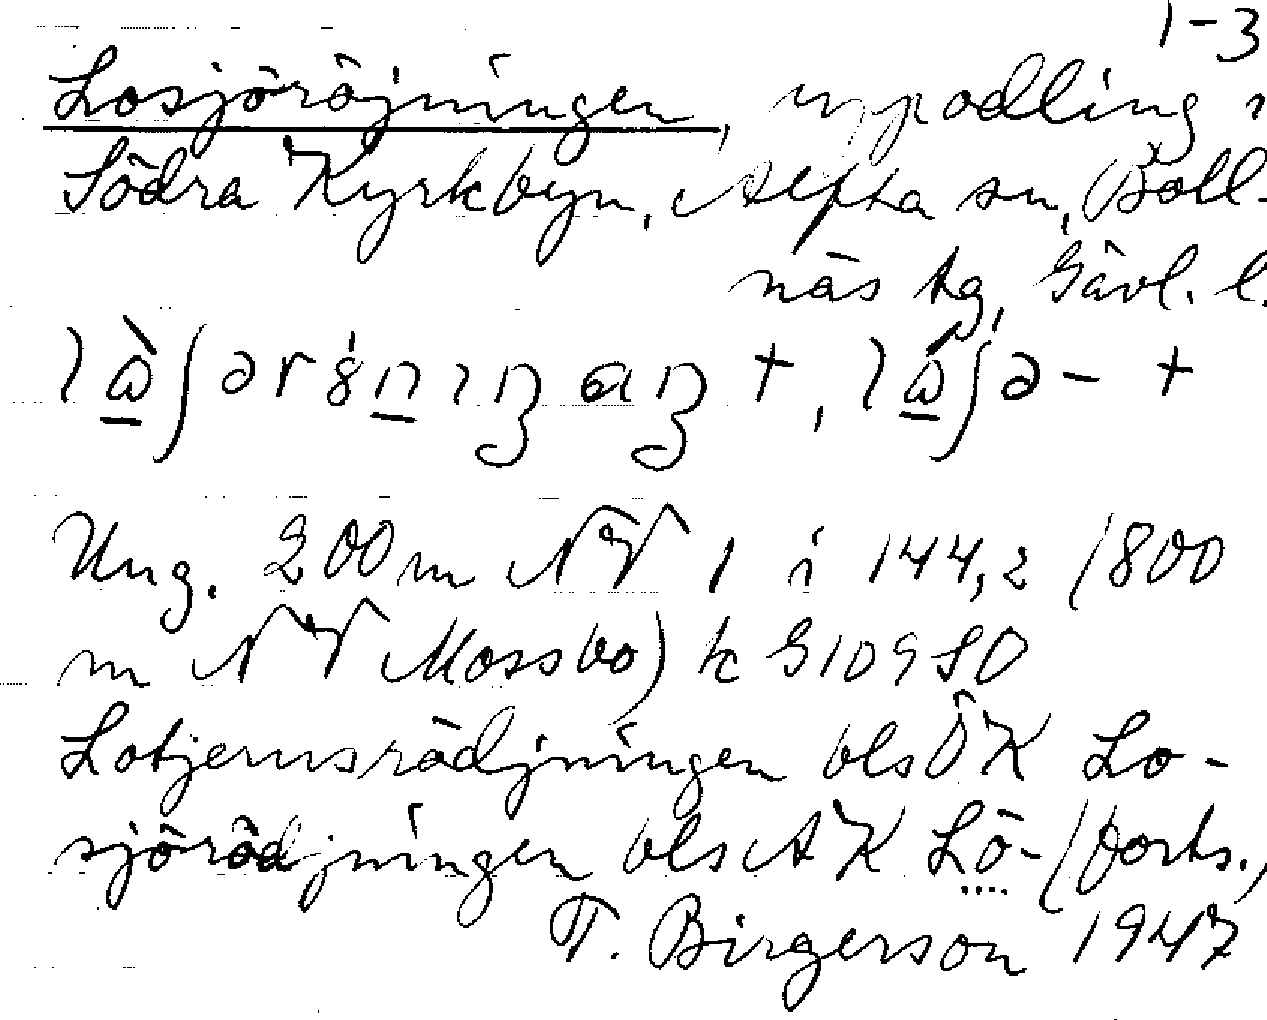 1-3
Losjöröjningen, uppodling i
Södra Kyrkbyn, Alfta sn, Boll-
näs tg, Gävl. l.
Ung. 200 m NV 1 i 144,2 (800
m NV Mossbo) k G109SO
Lotjernsrödjningen bls ÖK Lo-
sjörödjningen bls AK Lö- (forts.,
T. Birgerson 1947